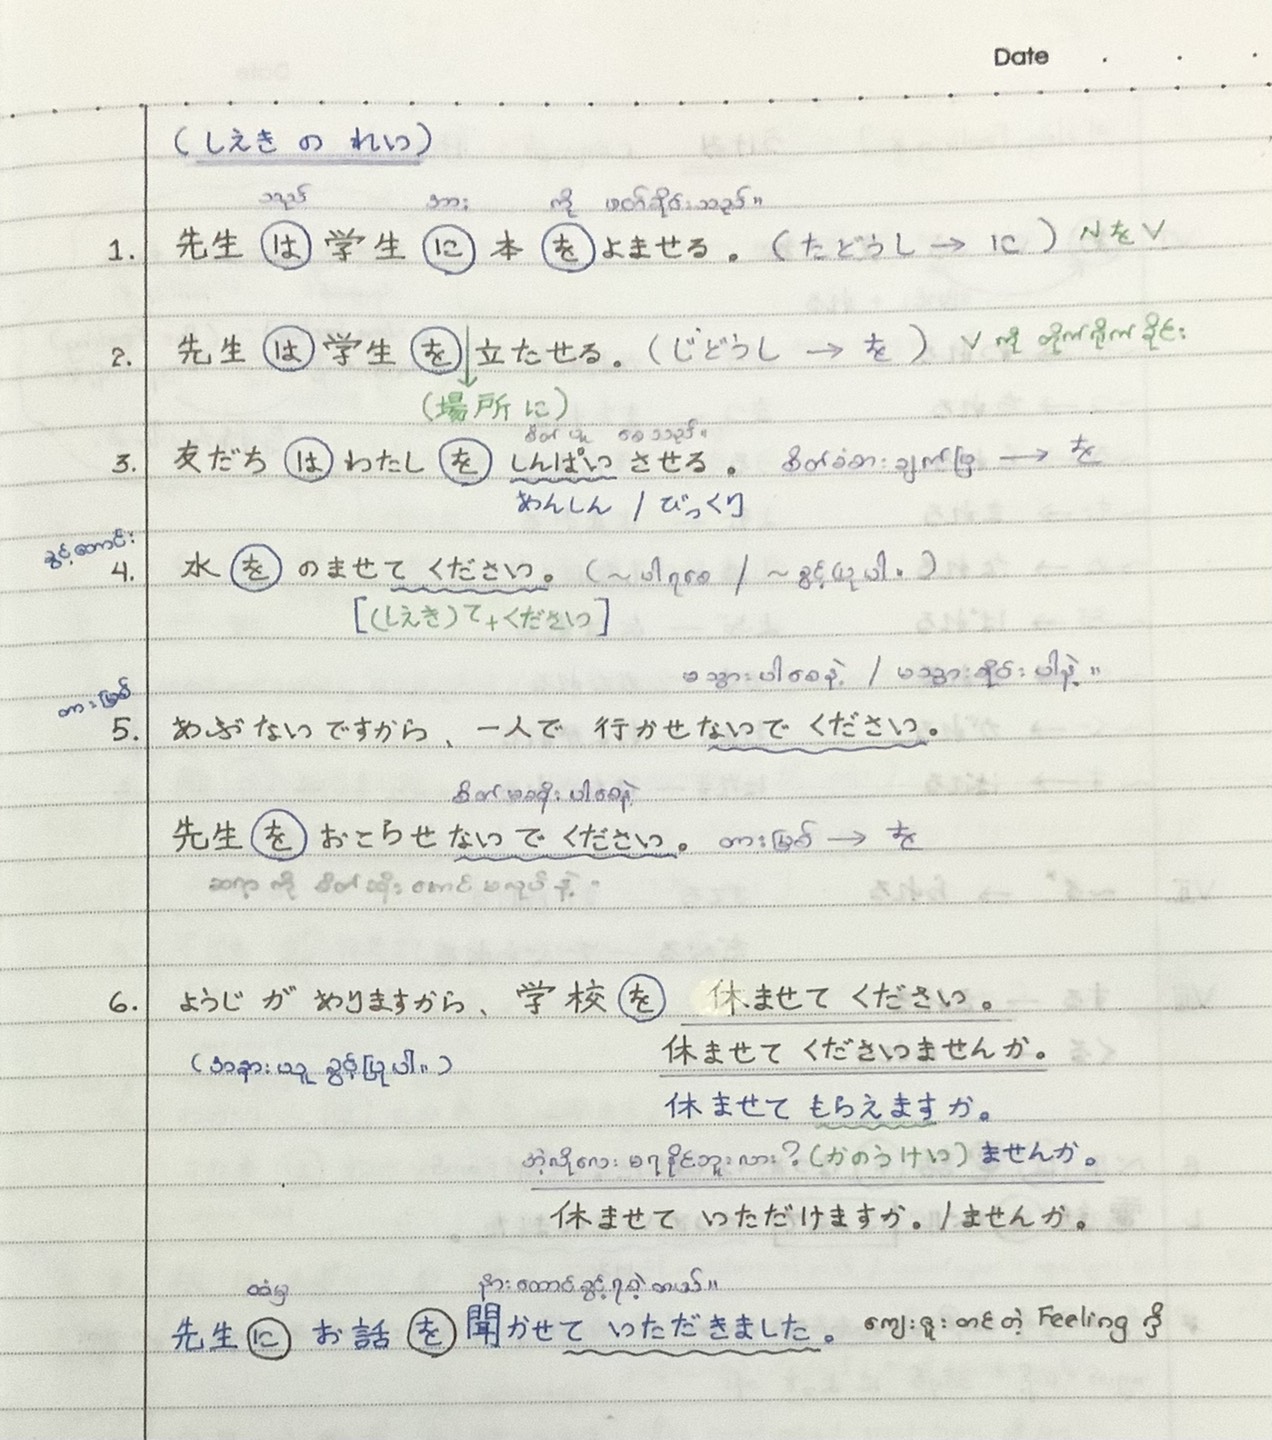 Date
(しえき の れい)
သည် အား ကို ဖတ်ခိုင်းသည်။
1. 先生 は 学生 に 本 を よませる。 (たどうし → に) NをV
2. 先生 は 学生 を 立たせる。 (じどうし → を) V ကို တိုက်ရိုက်ခိုင်း
(場所 に)
စိတ် ပူ စေသည်။
3. 友だち は わたし を しんぱい させる。 စိတ်ခံစားချက်ပြ → を
あんしん / びっくり
ခွင့်တောင်း
4. 水 を のませて ください。 (~ပါရစေ / ~ခွင့်ပြုပါ။)
[(しえき)て+ください]
မသွားပါစေနဲ့ / မသွားခိုင်းပါနဲ့။
တားမြစ်
5. あぶないですから、一人で 行かせないで ください。
စိတ်မဆိုးပါစေနဲ့
先生 を おこらせ ないで ください。 တားမြစ် → を
ဆရာ ကို စိတ်ဆိုးအောင် မလုပ်နဲ့။
6. ようじ が ありますから、学校 を 休ませて ください。
休ませて くださいませんか。
(အနားယူ ခွင့်ပြုပါ။)
休ませて もらえますか。
အဲ့လိုလေး မရနိုင်ဘူးလား? (かのうけい) ませんか。
休ませて いただけますか。/ませんか。
ထံမှ နားထောင်ခွင့်ရခဲ့တယ်။
先生 に お話 を 聞かせて いただきました。 ကျေးဇူးတင်တဲ့ Feeling ကို